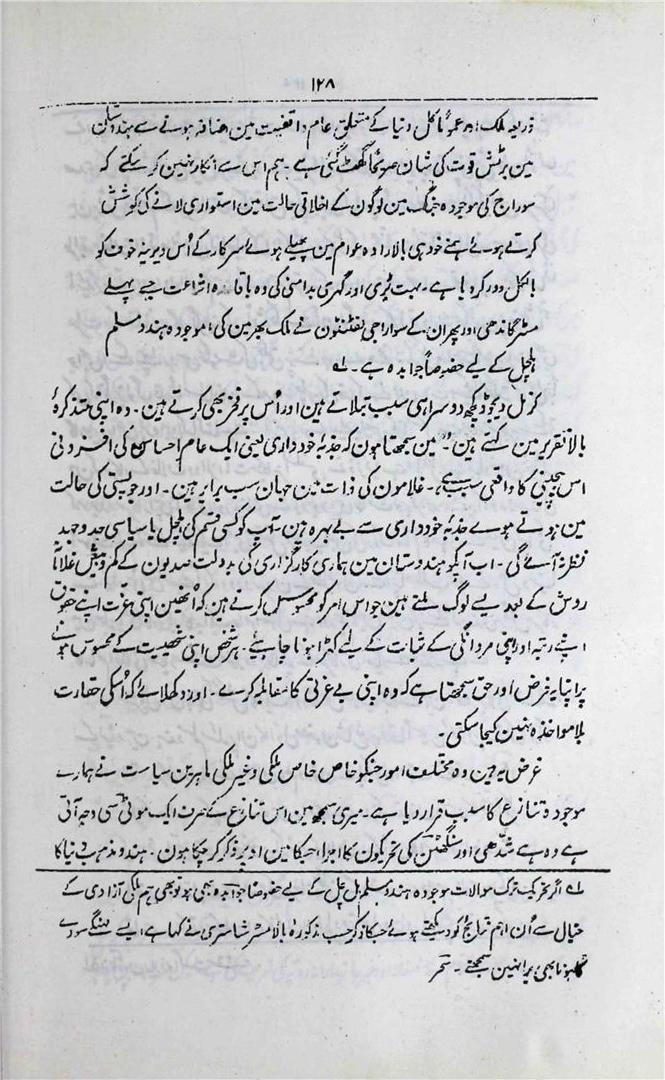 ۱۲۸
ذریعہ ملک اور عموماً کل دنیا کے متعلق عام واقفیت مین اضافہ ہونے سے ہندوستان
مین برٹش قوت کی شان صریحاً گھٹ گئی ہے۔ ہم اس سے انکار نہین کر سکتے کہ
سوراج کی موجودہ جنگ مین لوگون کے اخلاقی حالت مین استواری لانے کی کوشش
کرتے ہوئے ہمنے خود ہی بالارادہ عوام مین پھیلے ہوئے سرکار کے اُس دیرینہ خوف کو
بالکل دور کر دیا ہے۔ بہت بڑی اور گہری بدامنی کی وہ باقاعدہ اشاعت جسے پہلے
مسٹر گاندھی اور پھر ان کے سواراجی لفٹنٹون نے ملک بھر مین کی، موجودہ ہندو مسلم
ہلچل کے لیے خصوصاً جوابدہ ہے۔ ؎۱
کرنل ویجوڈ کچھ دوسرا ہی سبب بتلاتے ہین اور اُس پر فخر بھی کرتے ہین۔ وہ اپنی متذکرۂ
بالا تقریر مین کہتے ہین " مین سمجھتا ہون کہ جذبۂ خودداری یعنی ایک عام احساس کی افزونی
اس بیچینی کا واقعی سبب ہے۔ غلامون کی ذات مین جہان سب برابر ہین۔ اور جو پستی کی حالت
مین ہوتے ہوے جذبۂ خودداری سے بے بہرہ ہین آپ کو کسی قسم کی ہلچل یا سیاسی جدوجہد
نظر نہ آئے گی۔ اب آپکو ہندوستان مین ہماری کارگزاری کی بدولت صدیون کے کم و بیش غلامانہ
روش کے بعد ایسے لوگ ملتے ہین جو اس امر کو محسوس کرتے ہین کہ اُنھین اپنی عزت اپنے حقوق
اپنے رتبہ اور اپنی مردانگی کے ثبات کے لیے کھڑا ہونا چاہیے۔ ہر شخص اپنی شخصیت کے محسوس ہونے
پر اپنا یہ فرض اور حق سمجھتا ہے کہ وہ اپنی بے عزتی کا مقابلہ کرے۔ اور دکھلائے کہ اُسکی حقارت
بلا مواخذہ نہین کیجا سکتی۔
غرض یہ ہین وہ مختلف امور جنکو خاص خاص ملکی و غیر ملکی ماہرین سیاست نے ہمارے
موجودہ تنازع کا سبب قرار دیا ہے۔ میری سمجھ مین اس تنازع کے صرف ایک موٹی سی وجہ آتی
ہے وہ ہے شدھی اور سنگھٹن کی تحریکون کا اجرا، جسکا مین اوپر ذکر کر چکا ہون۔ ہندو مذہب دنیا کا
؎۱ اگر تحریک ترک موالات موجودہ ہندو مسلم ہل چل کے لیے خصوصاً جوابدہ بھی ہو تو بھی ہم ملکی آزادی کے
خیال سے اُن اہم نتائج کو دیکھتے ہوئے جسکا ذکر حسب مذکورۂ بالا مسٹر شاستری نے کہا ہے، ایسے مہنگے سودے
کا ہونا بھی برا نہین سمجھتے۔